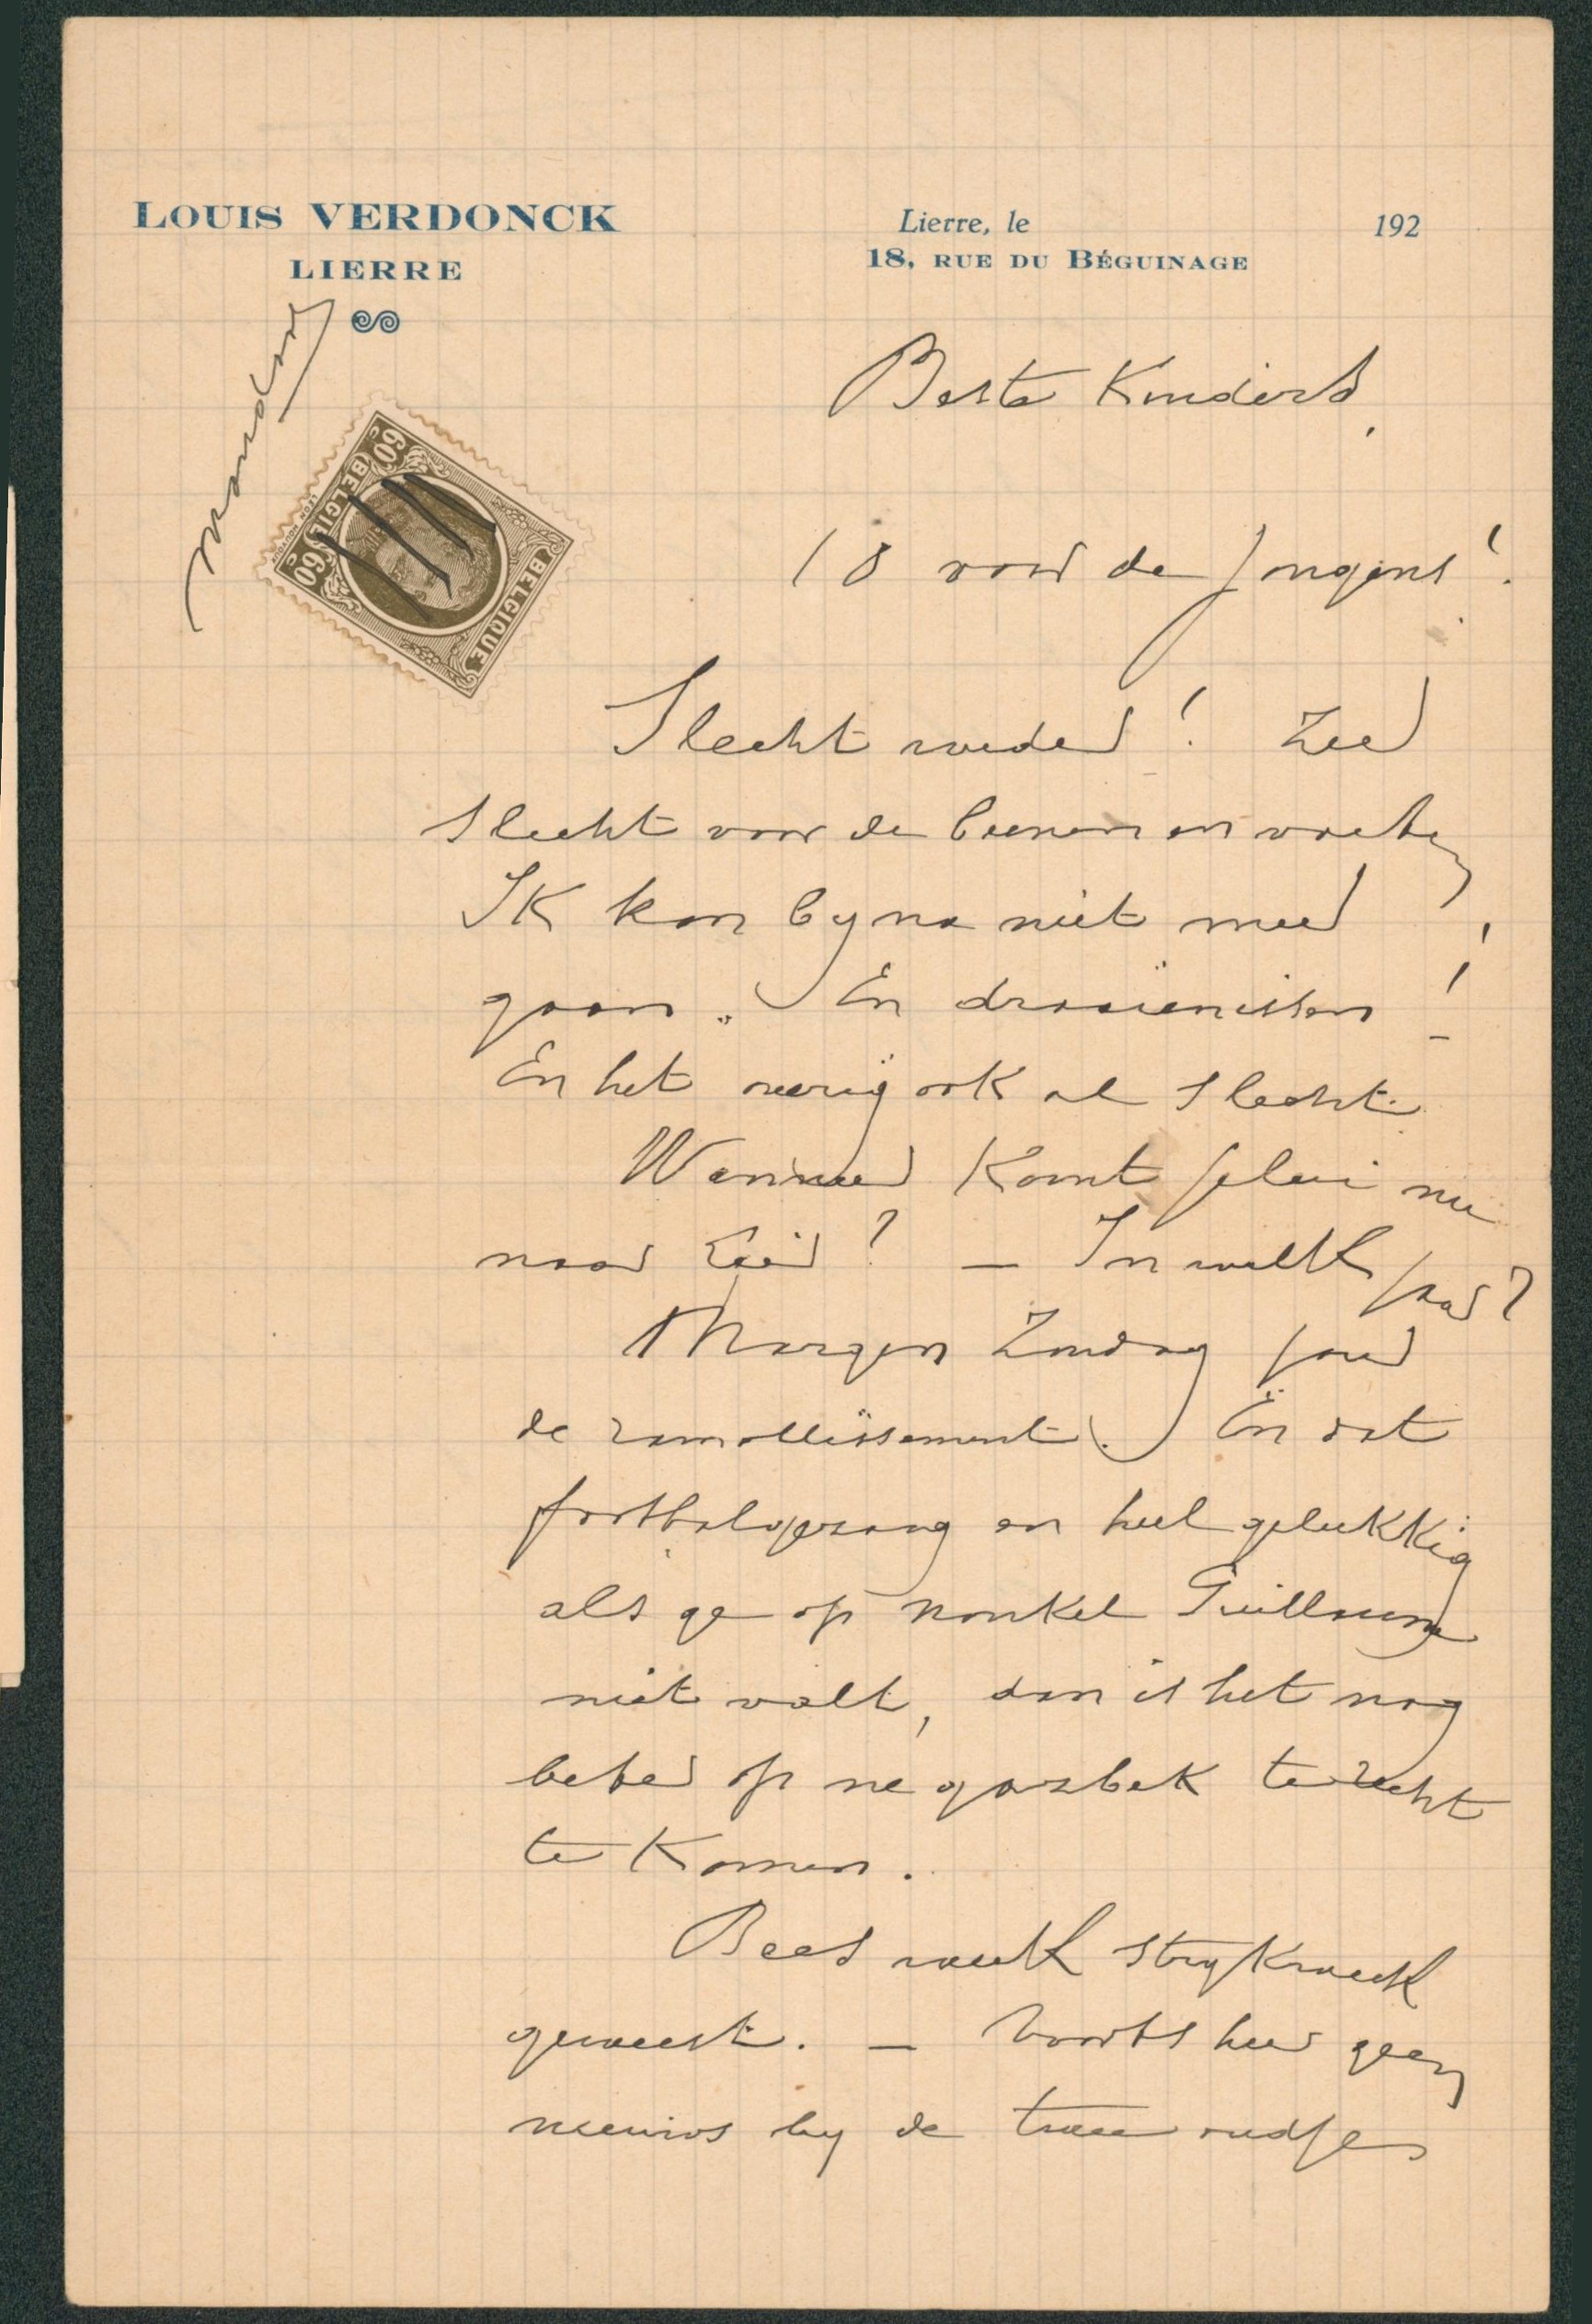 LOUIS VERDONCK
LIERRE
Lierre, le 192
18, RUE DU BÉGUINAGE
60 c
BELGIË
60 c
BELGIQUE
Beste Kinders,
18 voor de jongens!
Slecht weder! Zeer
slecht voor de beenen en voeten
Ik kan byna niet meer
gaan. En draaienissen!
En het neerig ook al slecht.
Wanneer komt jelui nu
naar Lier? — In welk jaar?
Morgen Zondag jour
de ramollissement. En dat
footbalgezang en heel gelukkig
als ge op nonkel Guillaume
niet valt, dan is het nog
beter op ne gazbek terecht
te komen.
Beest week stryk week
geweest. — Voorts hier geen
nieuws by de twee oudjes